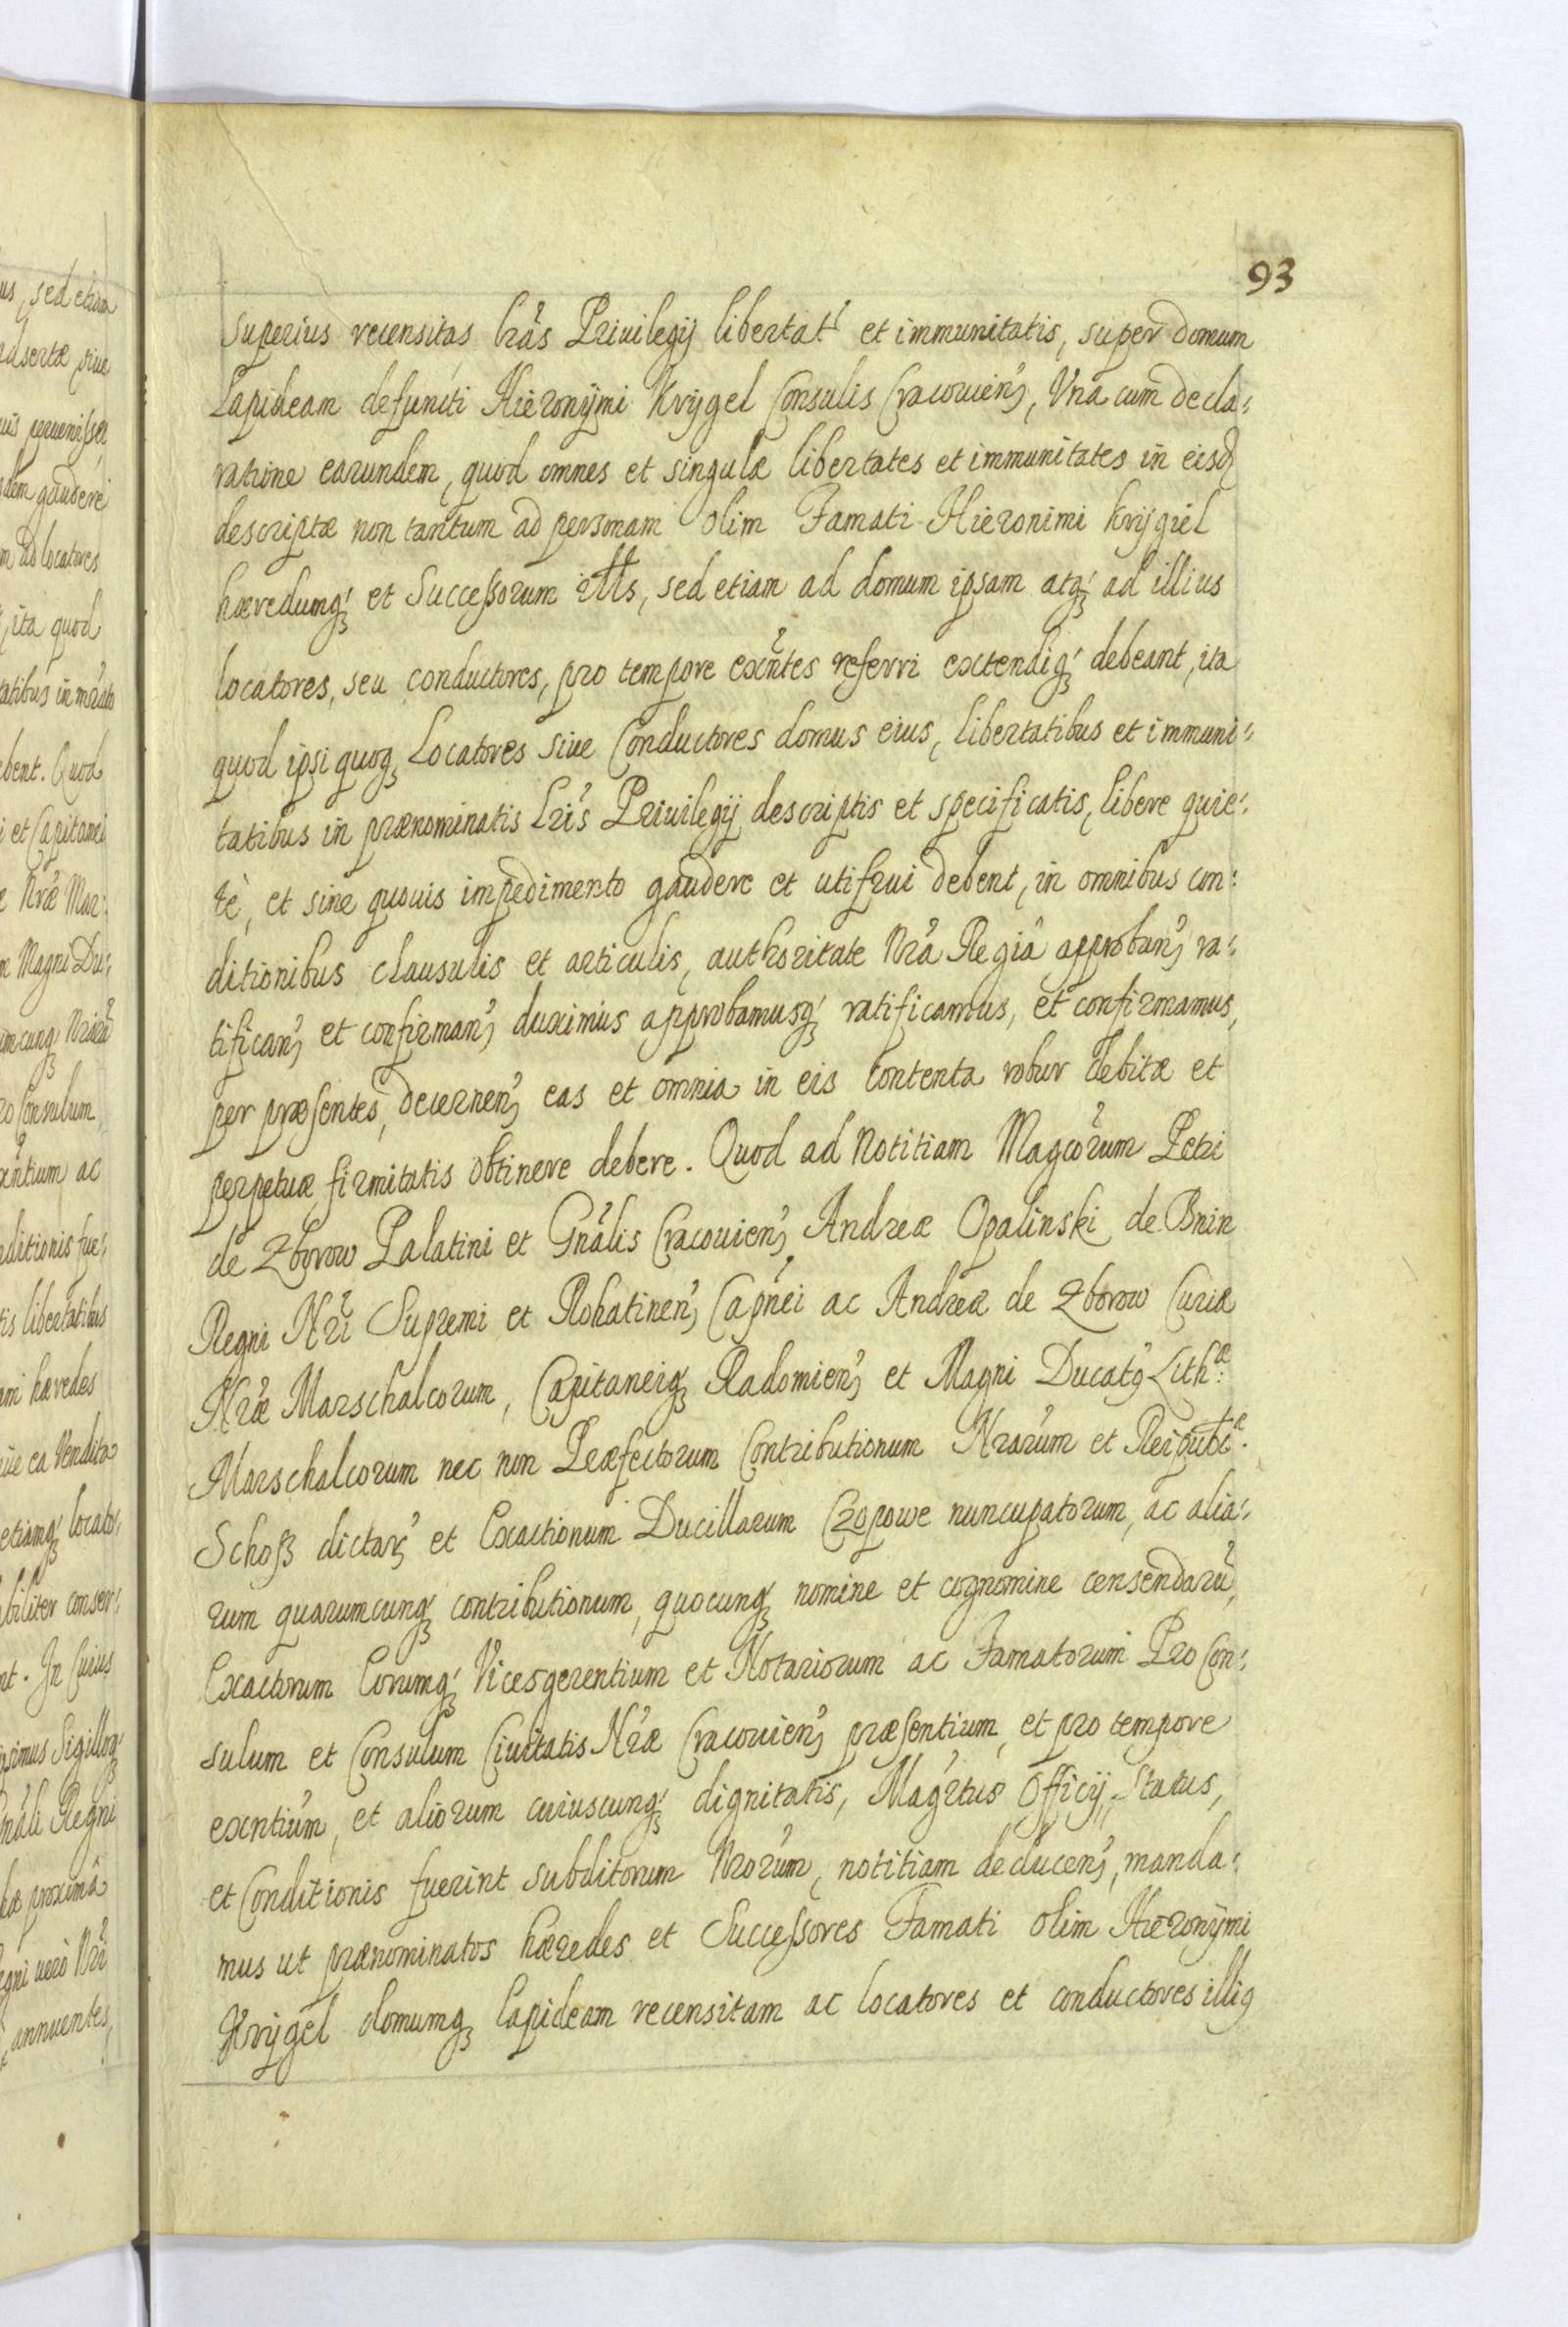 93
superius recensitas lrãs Priuilegij libertat' et immunitatis, super domum
Lapideam defuncti Hieronÿmi Krÿgel Consulis Cracouien̄, Vna cum decla:
ratione earundem, quod omnes et singulæ libertates et immunitates in eisd
descriptæ non tantum ad personam olim Famati Hieronimi Krÿgiel
hæredumq́ȝ et Successorum sed etiam ad domum ipsam atq́ȝ ad illius
locatores, seu conductores, pro tempore exñtes referri extendiq́ȝ debeant, ita
quod ipsi quoqȝ Locatores siue Conductores domus eius, libertatibus et immuni:
tatibus in prænominatis Lris̃ Priuilegij descriptis et specificatis, libere quie:
tè, et sine quouis impedimento gaudere et utifrui debent, in omnibus con:
ditionibus clausulis et articulis, authoritate Nrã Regiâ approban̄, ra:
tifican̄, et confirman̄, duximus approbamusq́ȝ ratificamus, et confirmamus,
per præsentes, decernen̄, eas et omnia in eis contenta robur debitæ et
perpetuæ firmitatis obtinere debere. Quod ad Notitiam Magcõrum Petri
de Zborow Palatini et Gnãlis Cracouien̄, Andreæ Opalinski de Bnin
Regni Nrĩ Supremi et Rohatinen̄, Capñei ac Andreæ de Zborow Curiæ
Nræ̃ Marschalcorum, Capitaneiqȝ Radomien̄, et Magni Ducatꝯ Lith:æ
Marschalcorum nec non Præfectorum Contributionum Nrarũm et Reipubcæ.
Schoß dictar̄, et Exactionum Ducillarum Czopowe nuncupatorum, ac alia:
rum quarumcunqȝ contributionum, quocunqȝ nomine et cognomine censendarũ,
Exactorum Eorumq́ȝ Vicesgerentium et Notariorum ac Famatorum Pro Con:
sulum et Consulum Ciuitatis Nræ̃ Cracouien̄, præsentium, et pro tempore
exntiũm, et aliorum cuiuscunq́ȝ dignitatis, Magr̃tus Officij, Status,
et Conditionis fuerint subditorum Nrorũm, notitiam deducen̄, manda:
mus ut prænominatos hæredes et Successores Famati olim Hieronÿmi
Krÿgel domumqȝ Lapideam recensitam ac locatores et conductores illiꝯ